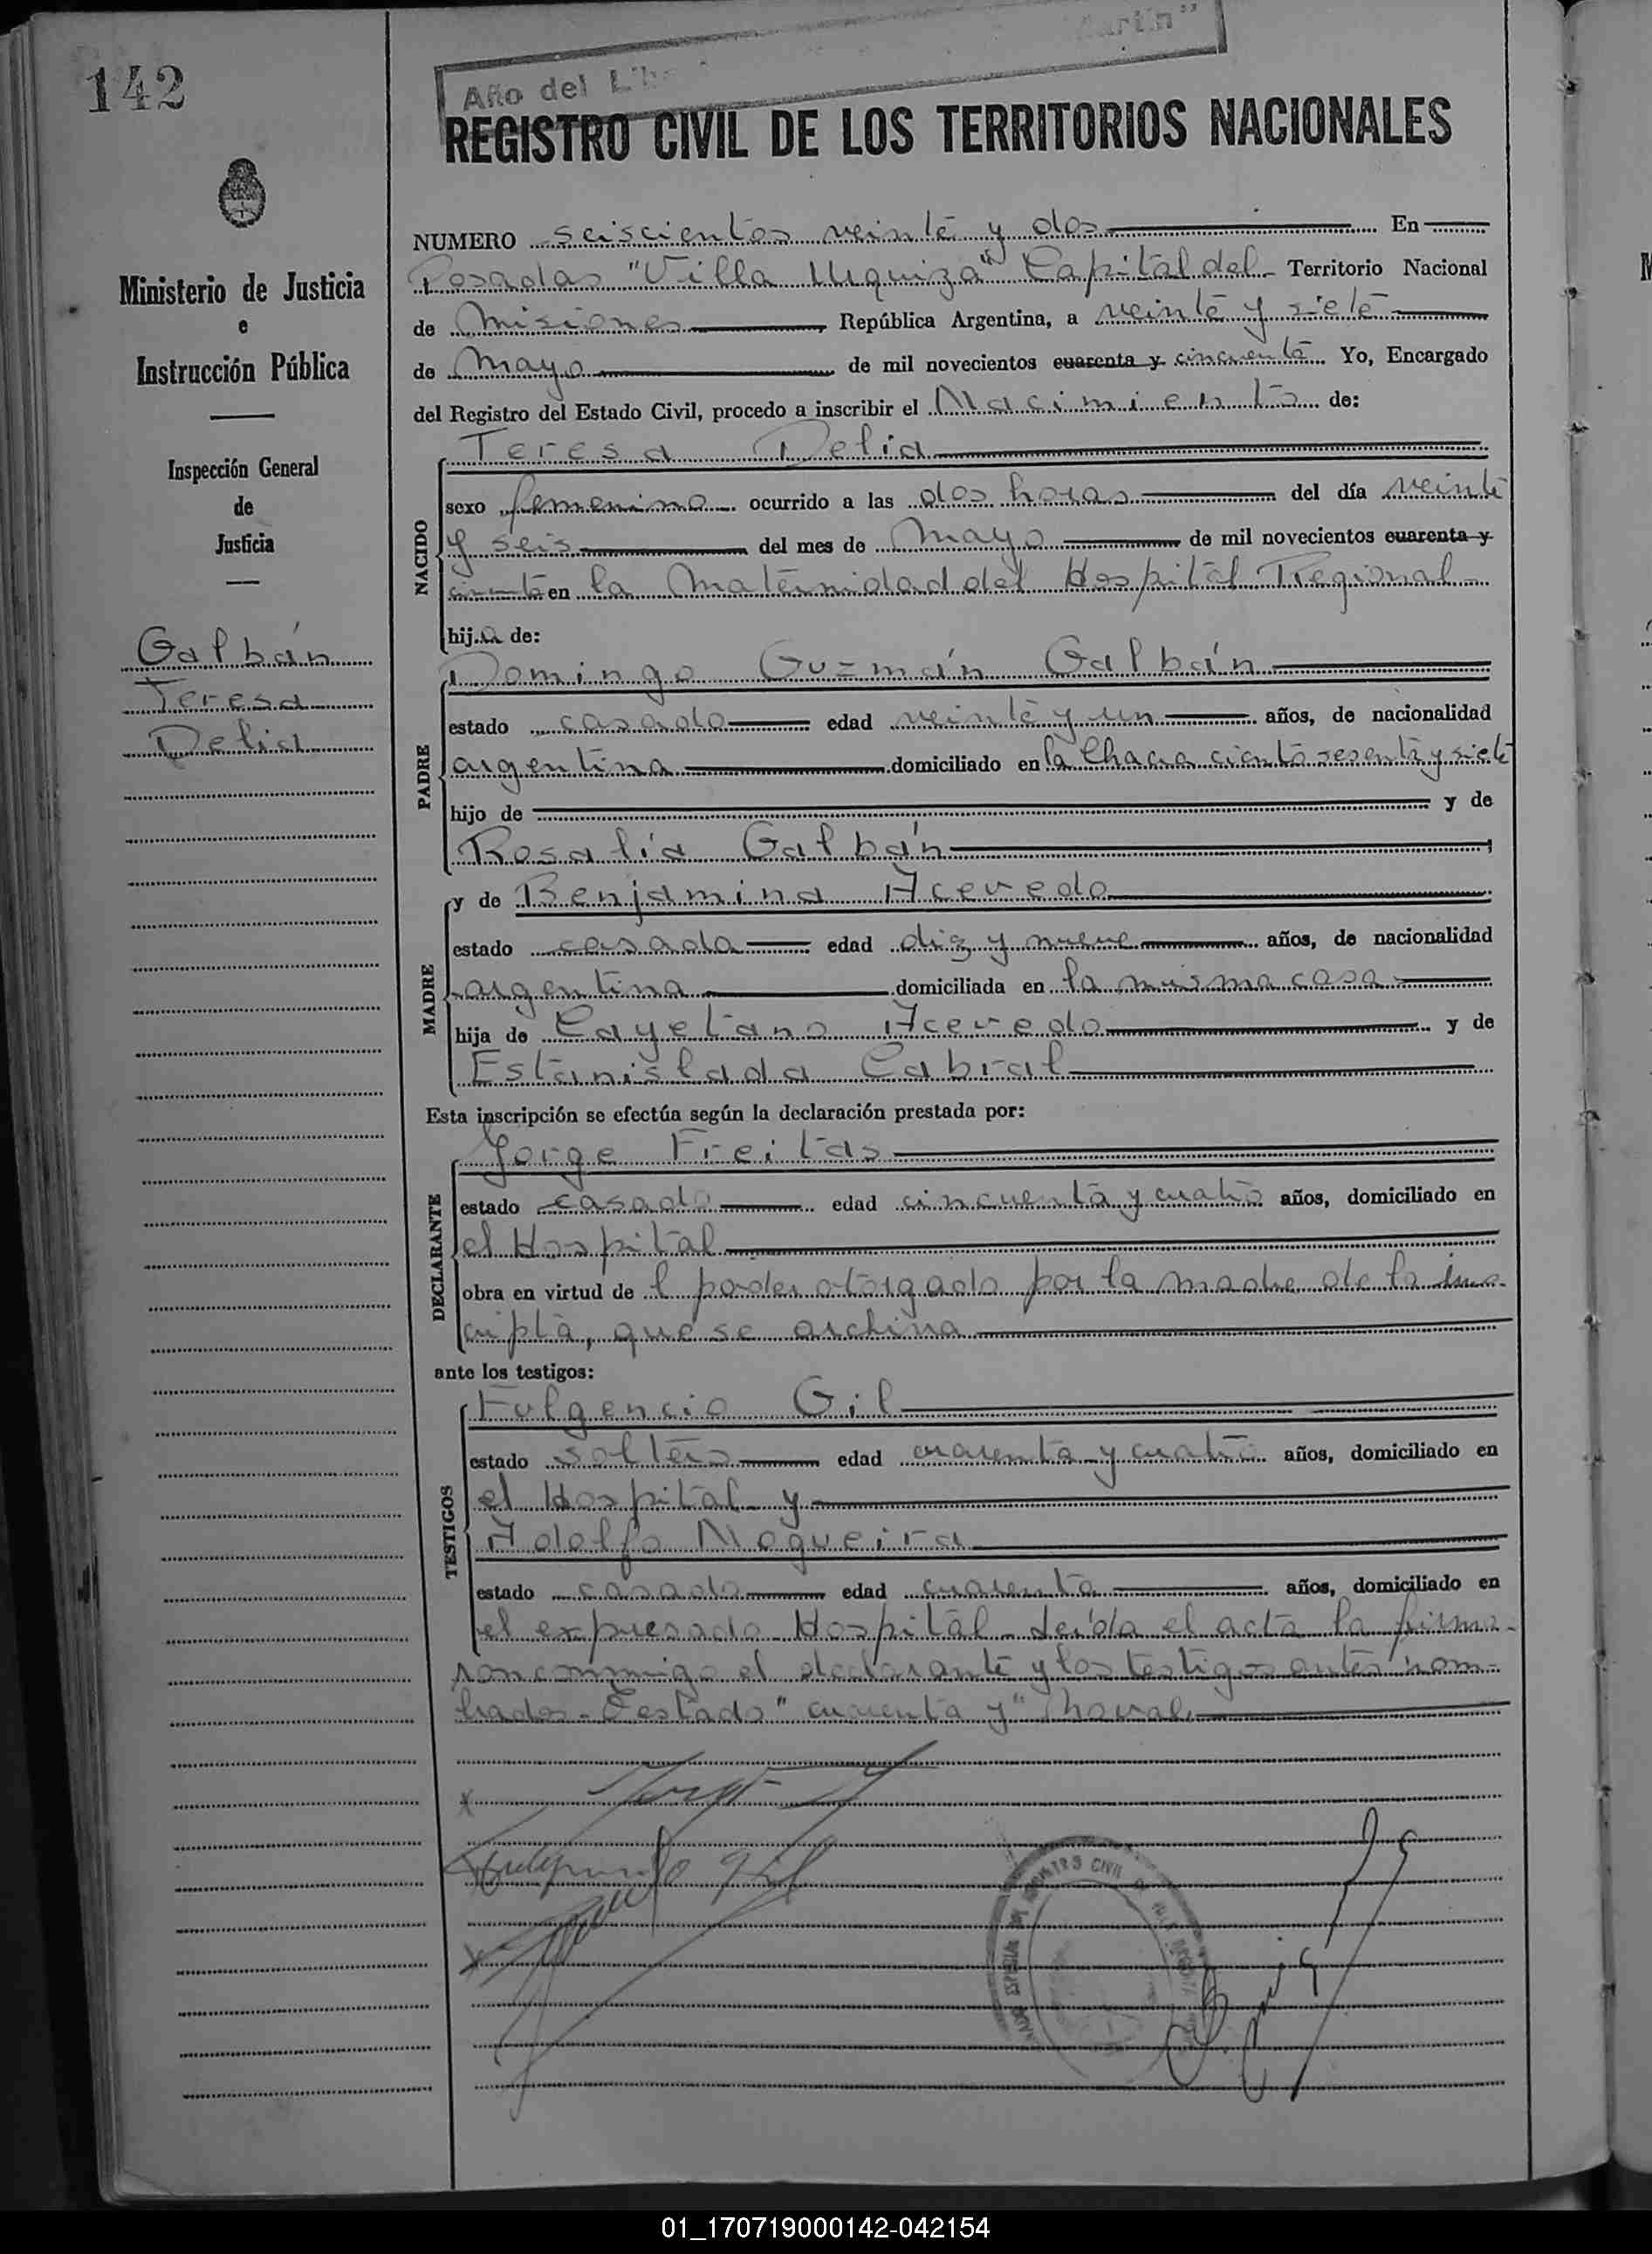 142
Año del Li
artín"
REGISTRO CIVIL DE LOS TERRITORIOS NACIONALES
Ministerio de Justicia
e
Instrucción Pública
Inspección General
de
Justicia
Galbán
Teresa
Delia
NUMERO seiscientos veinte y dos En
Posadas "Villa Urquiza" Capital del Territorio Nacional
de Misiones, República Argentina, a veinte y siete
de Mayo de mil novecientos cuarenta y cincuenta Yo, Encargado
del Registro del Estado Civil, procedo a inscribir el Nacimiento de:
NACIDO
Teresa Delia
sexo femenino ocurrido a las dos horas del día veinte
y seis del mes de Mayo de mil novecientos cuarenta y
en la Maternidad del Hospital Regional
hija de:
PADRE
Domingo Guzmán Galbán
estado casado edad veinte y un años, de nacionalidad
argentina domiciliado en la Chacra ciento sesenta y siete
hijo de y de
Rosalía Galbán
MADRE
y de Benjamina Acevedo
estado casada edad diez y nueve años, de nacionalidad
argentina domiciliada en la misma casa
hija de Cayetano Acevedo y de
Estanislada Cabral
Esta inscripción se efectúa según la declaración prestada por:
DECLARANTE
Jorge Freitas
estado casado edad cincuenta y cuatro años, domiciliado en
el Hospital
obra en virtud del poder otorgado por la madre de la ins-
cripta, que se archiva
ante los testigos:
TESTIGOS
Fulgencio Gil
estado soltero edad cuarenta y cuatro años, domiciliado en
el Hospital y
Adolfo Nogueira
estado casado edad cuarenta años, domiciliado en
el expresado Hospital. Leída el acta la firma-
ron conmigo el declarante y los testigos antes nom-
brados. Testado "cuarenta y" no vale.
x Jorge
Fulgencio Gil
x
REGISTRO CIVIL
01_170719000142-042154